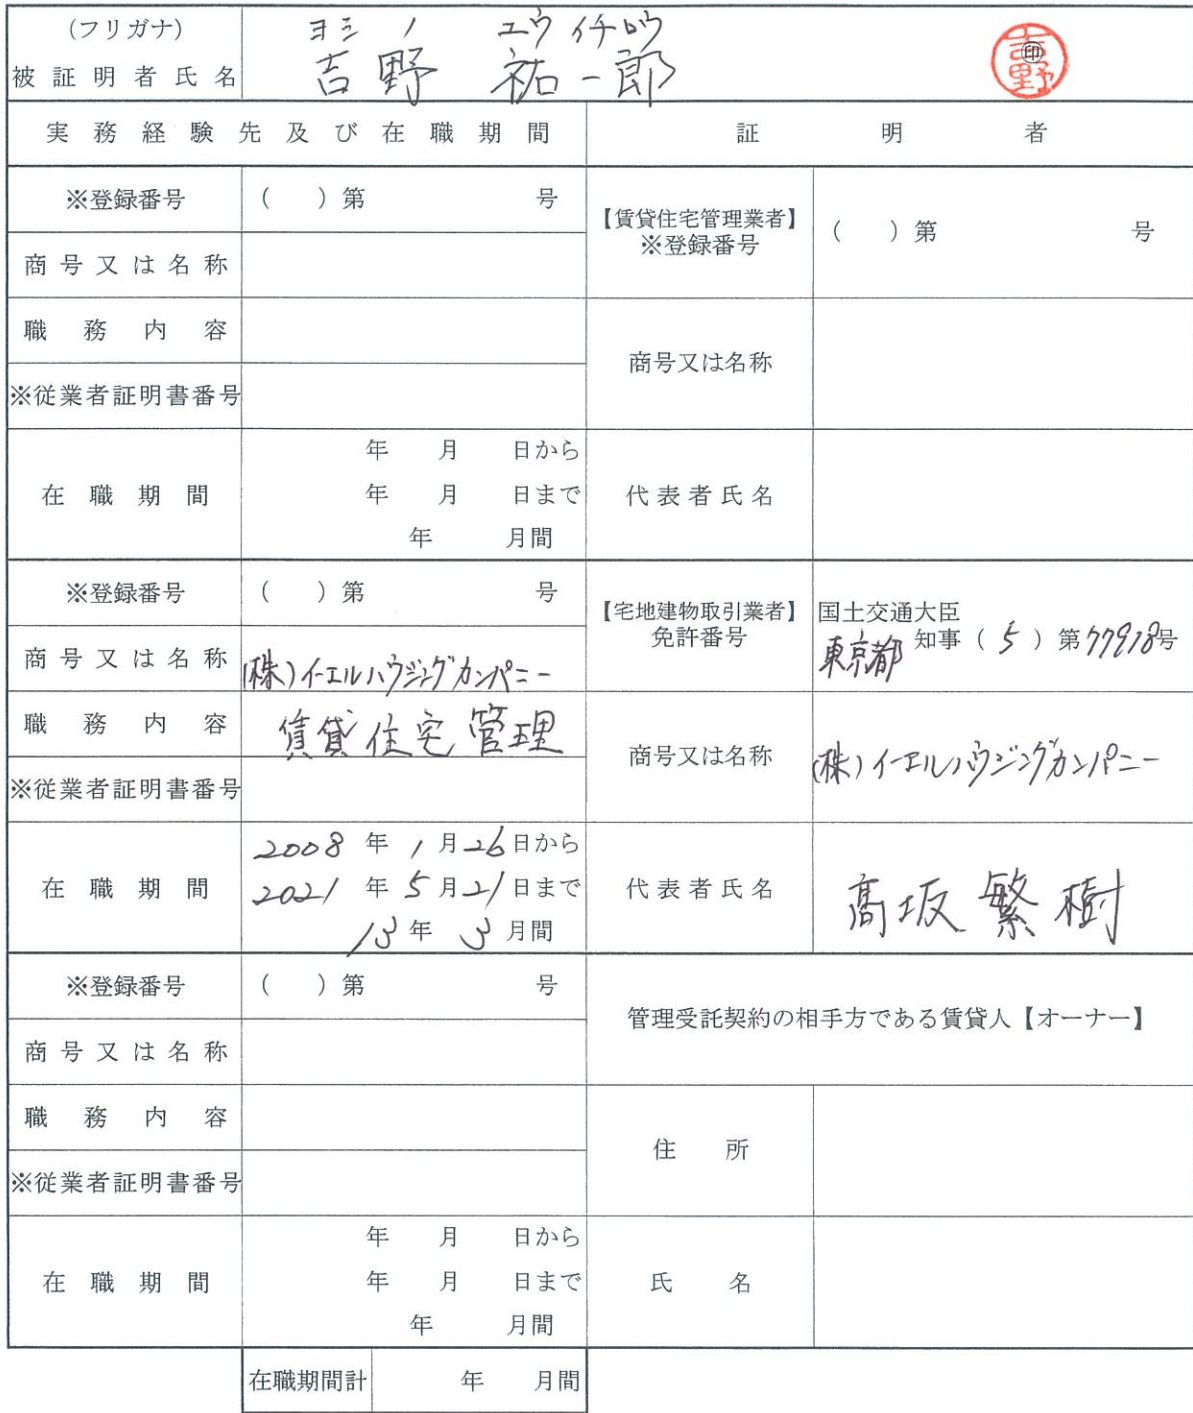 (フリガナ) ヨシノ ユウイチロウ
被証明者氏名 吉野 祐一郎 ㊞ 吉野
実務経験先及び在職期間 証明者
※登録番号 ( )第 号
【賃貸住宅管理業者】
※登録番号 ( )第 号
商号又は名称
職務内容
商号又は名称
※従業者証明書番号
在職期間
年 月 日から
年 月 日まで
年 月間
代表者氏名
※登録番号 ( )第 号
【宅地建物取引業者】
免許番号
国土交通大臣
東京都 知事(5)第77918号
商号又は名称 (株)イーエルハウジングカンパニー
職務内容 賃貸住宅管理
商号又は名称 (株)イーエルハウジングカンパニー
※従業者証明書番号
在職期間
2008年1月26日から
2021年5月21日まで
13年3月間
代表者氏名 髙坂 繁樹
※登録番号 ( )第 号
管理受託契約の相手方である賃貸人【オーナー】
商号又は名称
職務内容
住所
※従業者証明書番号
在職期間
年 月 日から
年 月 日まで
年 月間
氏名
在職期間計 年 月間